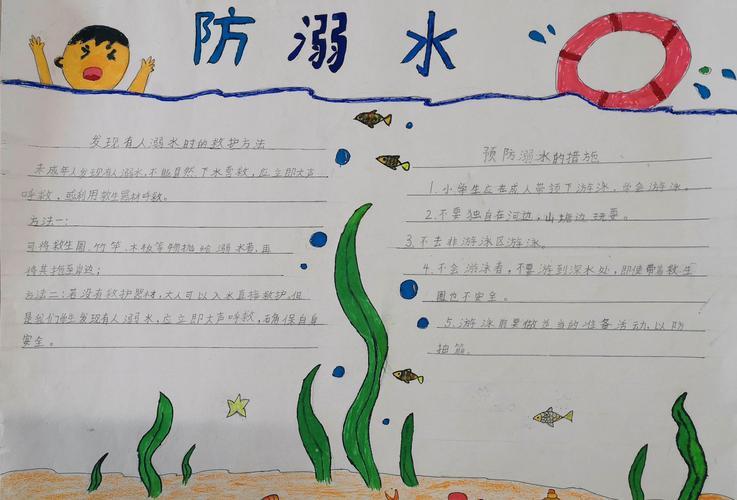 防溺水
发现有人溺水时的救护方法
未成年人发现有人溺水,不能贸然下水营救,应立即大声
呼救,或利用救生器材呼救。
方法一:
可将救生圈、竹竿、木板等物抛给溺水者,再
将其拖至岸边;
方法二:若没有救护器材,大人可以入水直接救护,但
是我们学生发现有人溺水,应立即大声呼救,确保自身
安全。
预防溺水的措施
1.小学生应在成人带领下游泳,学会游泳。
2.不要独自在河边、山塘边玩耍。
3.不去非游泳区游泳。
4.不会游泳者,不要游到深水处,即使带着救生
圈也不安全。
5.游泳前要做适当的准备活动,以防
抽筋。